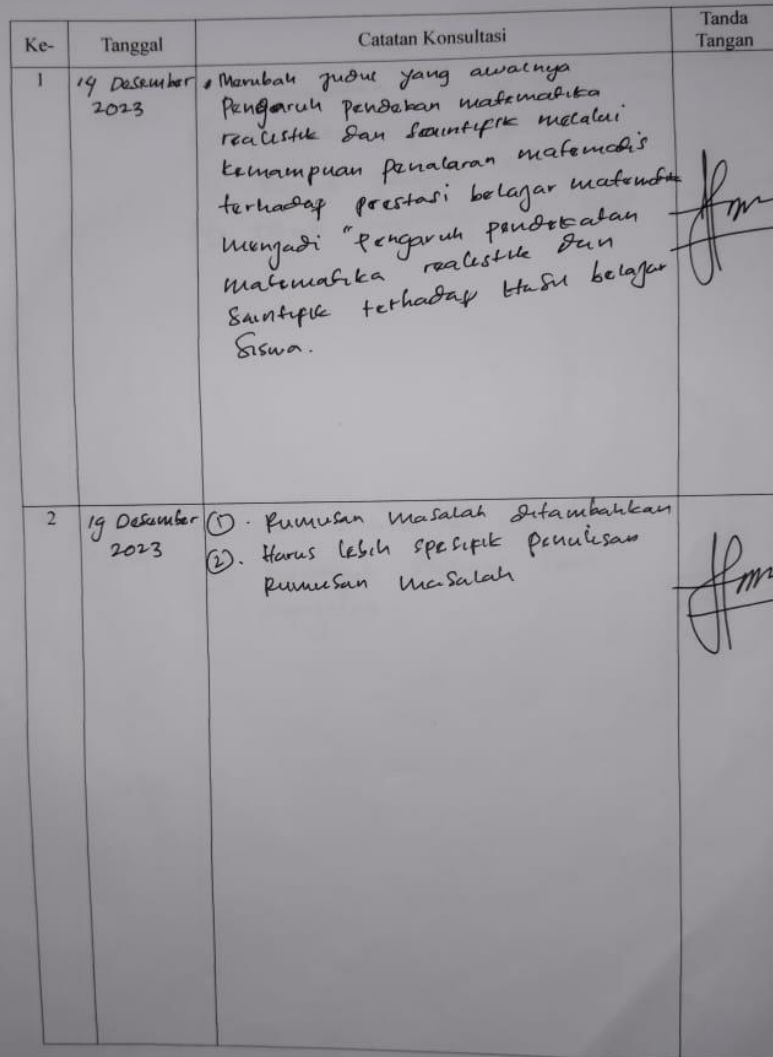 Ke-
Tanggal
Catatan Konsultasi
Tanda
Tangan
1
14 Desember
2023
• Merubah judul yang awalnya
Pengaruh pendekan matematika
realistik dan Saintifik melalui
kemampuan penalaran matematis
terhadap prestasi belajar matematika
menjadi "pengaruh pendekatan
matematika realistik dan
Saintifik terhadap Hasil belajar
Siswa.
2
19 Desember
2023
① . Rumusan masalah ditambahkan
② . Harus lebih spesifik penulisan
Rumusan masalah